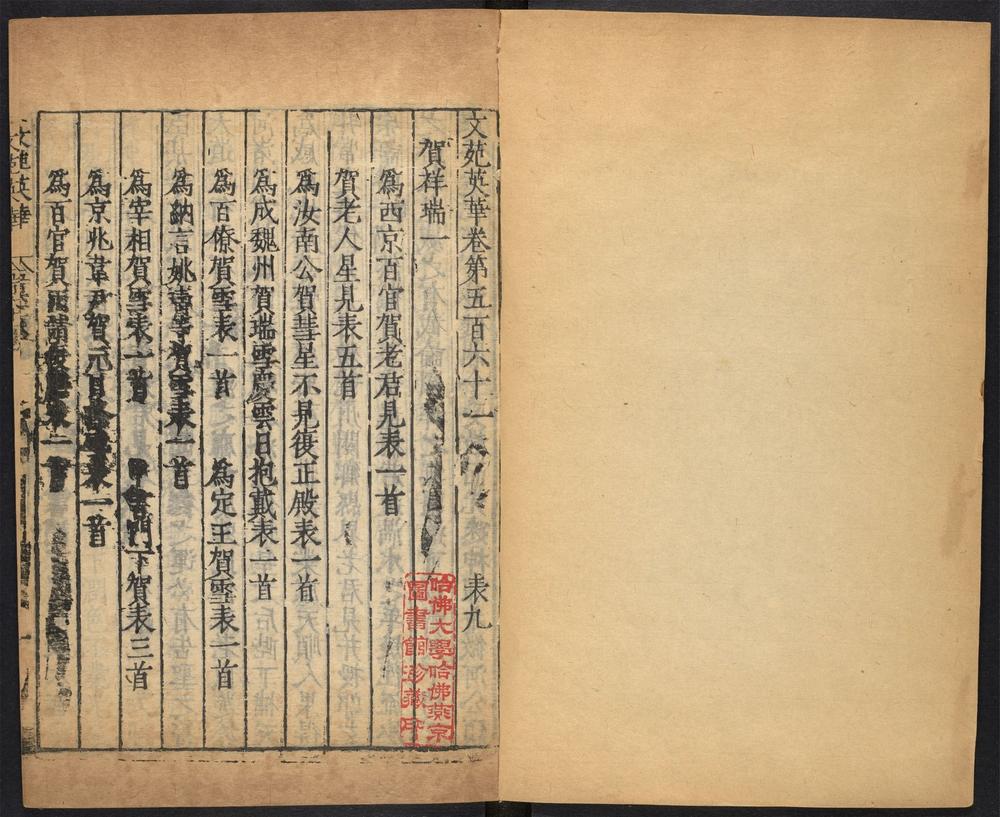 文苑英華卷第五百六十一 表九
賀祥瑞一
為西京百官賀老君見表一首
賀老人星見表五首
為汝南公賀彗星不見復正殿表一首
為成魏州賀瑞雪慶雲日抱戴表一首
為百僚賀雪表一首 為定王賀雪表一首
為納言姚璹等賀雪表一首
為宰相賀雪表一首 中書門下賀表三首
為京兆韋尹賀元日表一首
為百官賀雨請復膳表二首
文苑英華
哈佛大學哈佛燕京
圖書館珍藏印